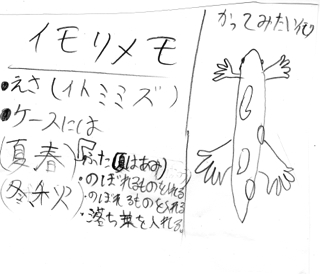 イモリメモ
かってみたいイモリ
●えさ(イトミミズ)
●ケースには
(夏春)「ふた(夏はあみ)
・のぼれるものを入れる
(冬秋)・のぼれるものを入れる
・落ち葉を入れる。